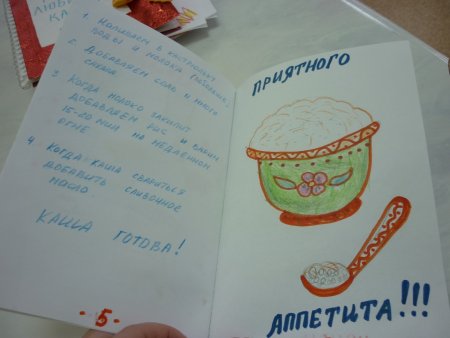 ЛЮБИ
КА
1. Наливаем в кастрюльку
воды и молока
2. Добавляем соль и много
сахара
3. Когда молоко закипит
добавляем рис и варим
15-20 мин на медленном
огне
4. Когда каша свариться
добавить сливочное
масло
КАША ГОТОВА!
-5-
ПРИЯТНОГО
АППЕТИТА!!!